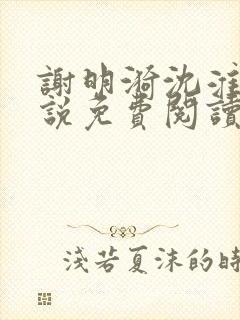 謝明漪沈淮
說免費閱讀
淺若夏沫的時